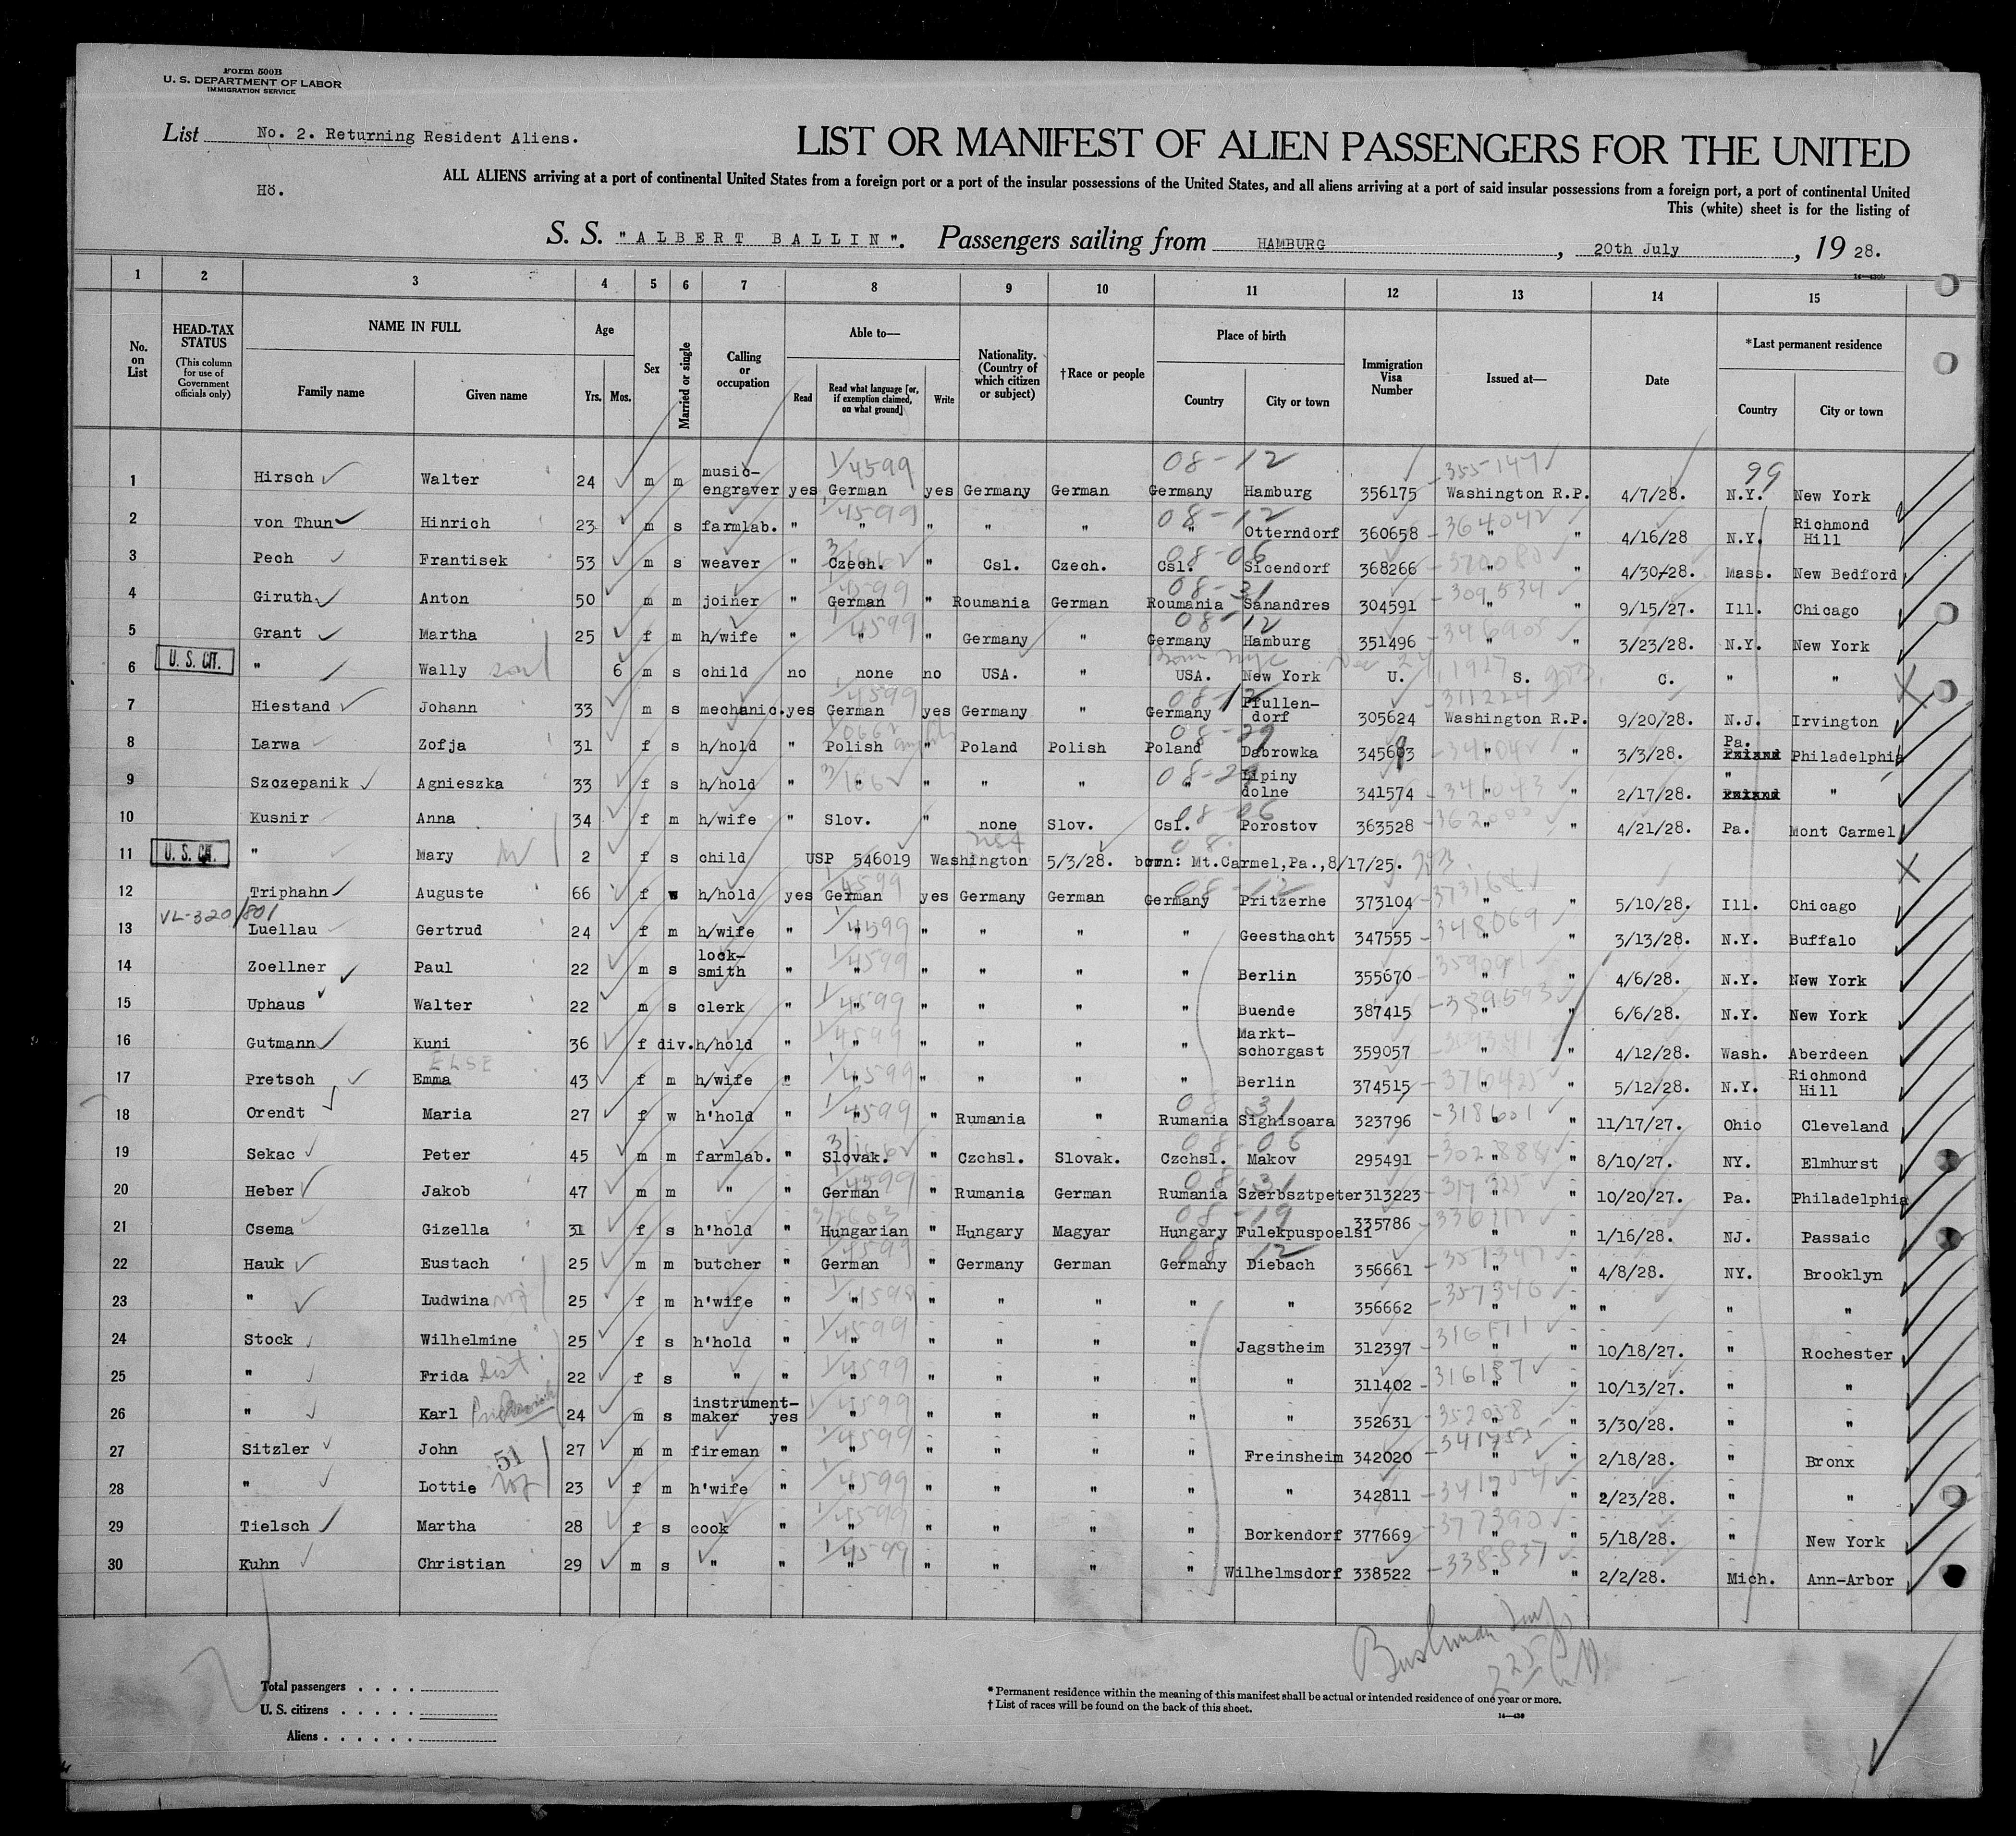 Form 500B
U. S. DEPARTMENT OF LABOR
IMMIGRATION SERVICE
List No. 2. Returning Resident Aliens.
LIST OR MANIFEST OF ALIEN PASSENGERS FOR THE UNITED
Hö.
ALL ALIENS arriving at a port of continental United States from a foreign port or a port of the insular possessions of the United States, and all aliens arriving at a port of said insular possessions from a foreign port, a port of continental United
This (white) sheet is for the listing of
S. S. "ALBERT BALLIN". Passengers sailing from HAMBURG, 20th July, 19 28.
1 2 3 4 5 6 7 8 9 10 11 12 13 14 15
No. on List
HEAD-TAX STATUS (This column for use of Government officials only)
NAME IN FULL Family name Given name
Age Yrs. Mos.
Sex
Married or single
Calling or occupation
Able to— Read Read what language [or, if exemption claimed, on what ground] Write
Nationality. (Country of which citizen or subject)
†Race or people
Place of birth Country City or town
Immigration Visa Number
Issued at—
Date
*Last permanent residence Country City or town
1 Hirsch Walter 24 m m music-engraver yes German 1/4599 yes Germany German Germany 08-12 Hamburg 356175 355147 Washington R.P. 4/7/28. N.Y. 99 New York
2 von Thun Hinrich 23 m s farmlab. " " 1/4599 " " " " 08-12 Otterndorf 360658 364042 " " 4/16/28 N.Y. Richmond Hill
3 Pech Frantisek 53 m s weaver " Czech. " Csl. Czech. Csl. 08-06 Sicendorf 368266 370080 " " 4/30-28. Mass. New Bedford
4 Giruth Anton 50 m m joiner " German 1/4599 " Roumania German Roumania 08-31 Sanandres 304591 309534 " " 9/15/27. Ill. Chicago
5 Grant Martha 25 f m h/wife " " 1/4599 " Germany " Germany 08-12 Hamburg 351496 346905 " " 3/23/28. N.Y. New York
6 U. S. CIT. " Wally son 6 m s child no none no USA. " USA. New York Born NYC Dec 24, 1927 U. S. C. " "
7 Hiestand Johann 33 m s mechanic. yes German 1/4599 yes Germany " Germany 08-12 Pfullendorf 305624 311224 Washington R.P. 9/20/28. N.J. Irvington
8 Larwa Zofja 31 f s h/hold " Polish " Poland Polish Poland 08-29 Dabrowka 345603 " " 3/3/28. Pa. Philadelphia
9 Szczepanik Agnieszka 33 f s h/hold " " " " " " 08-29 Lipiny dolne 341574 341043 " " 2/17/28. " "
10 Kusnir Anna 34 f m h/wife " Slov. " none Slov. Csl. 08-06 Porostov 363528 " " 4/21/28. Pa. Mont Carmel
11 U. S. CIT. " Mary 2 f s child USP 546019 Washington 5/3/28. born: Mt.Carmel,Pa.,8/17/25. USA
12 Triphahn Auguste 66 f w h/hold yes German 1/4599 yes Germany German Germany 08-12 Pritzerhe 373104 " " 5/10/28. Ill. Chicago
VL-320/801
13 Luellau Gertrud 24 f m h/wife " " 1/4599 " " " " Geesthacht 347555 348069 " " 3/13/28. N.Y. Buffalo
14 Zoellner Paul 22 m s lock-smith " " 1/4599 " " " " Berlin 355670 359091 " " 4/6/28. N.Y. New York
15 Uphaus Walter 22 m s clerk " " 1/4599 " " " " Buende 387415 389593 " " 6/6/28. N.Y. New York
16 Gutmann Kuni 36 f div. h/hold " " 1/4599 " " " " Markt-schorgast 359057 " " 4/12/28. Wash. Aberdeen
17 Pretsch ELSE Emma 43 f m h/wife " " 1/4599 " " " " Berlin 374515 376425 " " 5/12/28. N.Y. Richmond Hill
18 Orendt Maria 27 f w h'hold " " 1/4599 " Rumania " Rumania 08 31 Sighisoara 323796 318601 " " 11/17/27. Ohio Cleveland
19 Sekac Peter 45 m m farmlab. " Slovak. " Czchsl. Slovak. Czchsl. 08-06 Makov 295491 302888 " " 8/10/27. NY. Elmhurst
20 Heber Jakob 47 m m " " German 1/4599 " Rumania German Rumania 08-31 Szerbsztpeter 313223 317325 " " 10/20/27. Pa. Philadelphia
21 Csema Gizella 31 f s h'hold " Hungarian " Hungary Magyar Hungary 08-19 Fulekpuspoelsi 335786 336112 " " 1/16/28. NJ. Passaic
22 Hauk Eustach 25 m m butcher " German 1/4599 " Germany German Germany 08 12 Diebach 356661 357347 " " 4/8/28. NY. Brooklyn
23 " Ludwina wf 25 f m h'wife " " 1/4599 " " " " " 356662 357346 " " " " "
24 Stock Wilhelmine 25 f s h'hold " " 1/4599 " " " " Jagstheim 312397 316171 " " 10/18/27. " Rochester
25 " Frida Sist. 22 f s " " " 1/4599 " " " " " 311402 316187 " " 10/13/27. " "
26 " Karl 24 m s instrument-maker yes " 1/4599 " " " " " 352631 352058 " " 3/30/28. " "
27 Sitzler John 27 m m fireman " " 1/4599 " " " " Freinsheim 342020 341755 " " 2/18/28. " Bronx
51
28 " Lottie wf 23 f m h'wife " " 1/4599 " " " " " 342811 341754 " " 2/23/28. " "
29 Tielsch Martha 28 f s cook " " 1/4599 " " " " Borkendorf 377669 377390 " " 5/18/28. " New York
30 Kuhn Christian 29 m s " " " 1/4599 " " " " Wilhelmsdorf 338522 338837 " " 2/2/28. Mich. Ann-Arbor
Bushman Insp
Total passengers . . . .
U. S. citizens . . . . .
Aliens . . . . . .
* Permanent residence within the meaning of this manifest shall be actual or intended residence of one year or more.
† List of races will be found on the back of this sheet.
14—430